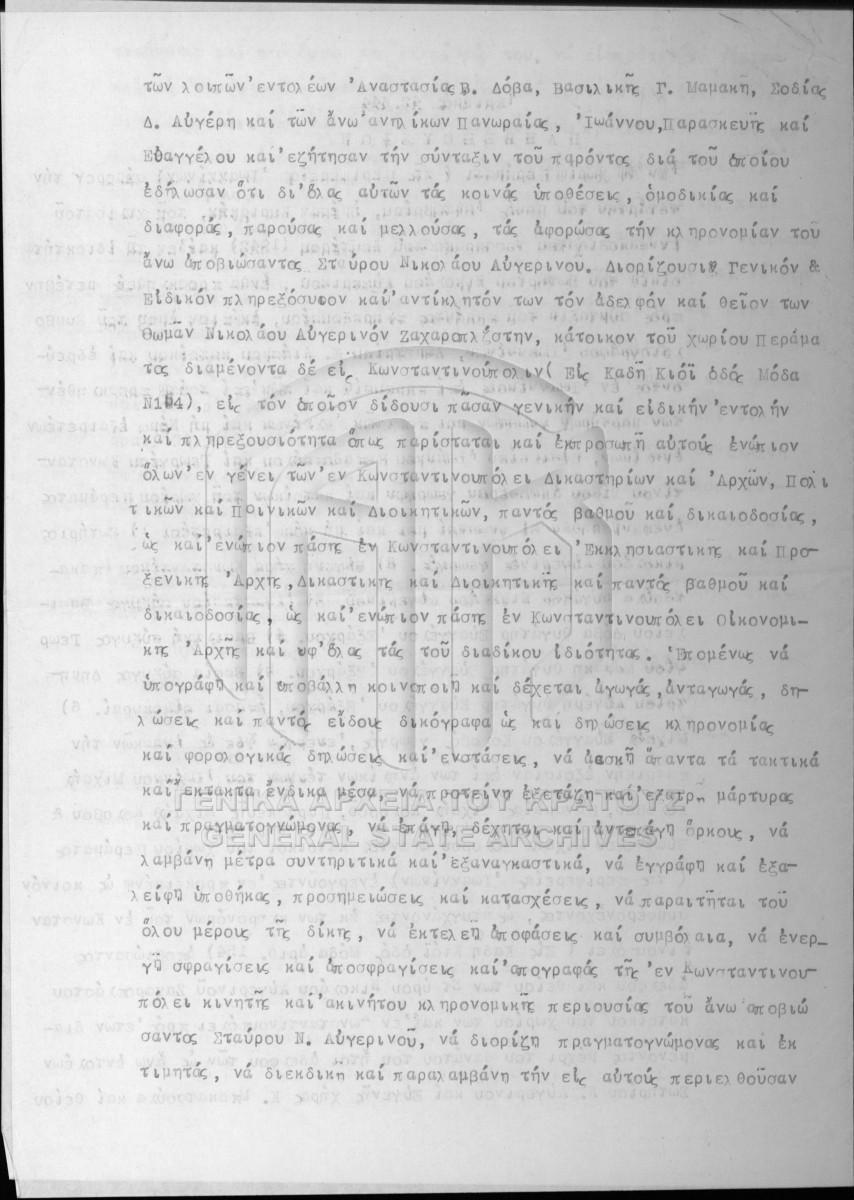 τῶν λοιπῶν'εντολέων 'Αναστασίας Β. Δόβα, Βασιλικῆς Γ. Μαμακῆ, Σοδίας
Δ. Αὐγέρη καί τῶν ἄνω'ανηλίκων Πανωραίας, 'Ιωάννου,Παρασκευῆς καί
Εὐαγγέλου και'εζήτησαν τήν σύνταξιν τοῦ παρόντος διά τοῦ ὁποίου
ἐδήλωσαν ὅτι δι'ὅλας αὐτῶν τάς κοινάς ὑποθέσεις, ὁμοδικίας καί
διαφοράς, παρούσας καί μελλούσας, τάς ἀφορώσας τήν κληρονομίαν τοῦ
ἄνω ἀποβιώσαντος Σταύρου Νικολάου Αὐγερινοῦ. Διορίζουσιν Γενικόν &
Εἰδικόν πληρεξόσυον και'αντικλητόν των τόν ἀδελφόν καί θεῖον των
Θωμᾶν Νικολάου Αὐγερινόν Ζαχαροπλάστην, κάτοικον τοῦ χωρίου Περάμα
τος διαμένοντα δέ εἰς Κωνσταντινούπολιν( Εἰς Καδῆ Κιοϊ ὁδός Μόδα
Ν164), εἰς τόν ὁποῖον δίδουσι πᾶσαν γενικήν καί εἰδικήν'εντολήν
και πληρεξουσιότητα ὅπως παρίσταται καί ἐκπροσωπῆ αὐτούς ἐνώπιον
ὅλων'εν γένει τῶν'εν Κωνσταντινουπόλει Δικαστηρίων καί 'Αρχῶν, Πολι
τικῶν και Ποινικῶν καί Διοικητικῶν, παντός βαθμοῦ καί δικαιοδοσίας,
ὡς και'ενώπιον πάσης ἐν Κωνσταντινουπόλει 'Εκκλησιαστικῆς καί Προ-
ξενικῆς 'Αρχῆς,Δικαστικῆς καί Διοικητικῆς καί παντός βαθμοῦ καί
δικαιοδοσίας, ὡς και'ενώπιον πάσης ἐν Κωνσταντινουπόλει Οἰκονομι-
κῆς 'Αρχῆς καί ὑφ'ὅλας τάς τοῦ διαδίκου ἰδιότητας. 'Επομένως νά
ὑπογράφη καί ὑποβάλλη κοινοποιῆ καί δέχεται ἀγωγάς,ἀνταγωγάς, δη-
λώσεις καί παντός εἴδους δικόγραφα ὡς και δηλώσεις κληρονομίας
καί φορολογικάς δηλώσεις και'ενστάσεις, νά ἀσκῆ ἅπαντα τά τακτικά
και ἔκτακτα ἔνδικα μέσα, νά προτείνη ἐξετάζη και'εξαιρῆ μάρτυρας
και πραγματογνώμονας, νά ἐπάγη, δέχηται καί ἀντεπάγη ὅρκους, νά
ΓΕΝΙΚΑ ΑΡΧΕΙΑ ΤΟΥ ΚΡΑΤΟΥΣ
GENERAL STATE ARCHIVES
λαμβάνη μέτρα συντηριτικά και'εξαναγκαστικά, νά ἐγγράφη καί ἐξα-
λείφη ὑποθήκας, προσημειώσεις καί κατασχέσεις, νά παραιτῆται τοῦ
ὅλου μέρους τῆς δίκης, νά ἐκτελεῖ ἀποφάσεις καί συμβόλαια, νά ἐνερ-
γῆ σφραγίσεις καί ἀποσφραγίσεις και'απογραφάς τῆς'εν Κωνσταντινου-
πόλει κινητῆς και'ακινήτου κληρονομικῆς περιουσίας τοῦ ἄνω'αποβιώ
σαντος Σταύρου Ν. Αὐγερινοῦ, νά διορίζη πραγματογνώμονας καί ἐκ
τιμητάς, νά διεκδικῆ καί παραλαμβάνη τήν εἰς αὐτούς περιελθοῦσαν